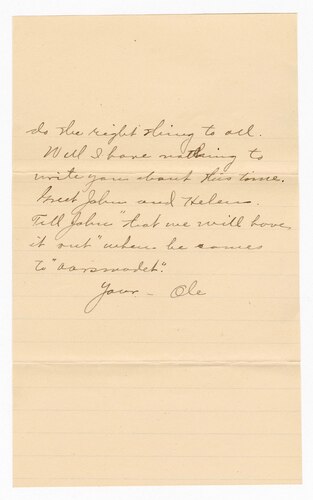 do the right thing to all.
Will I have nothing to
write you about this time.
Greet John and Helen.
Till John "that we will have
it out" when he comes
to "aarsmødet".
Your - Ole